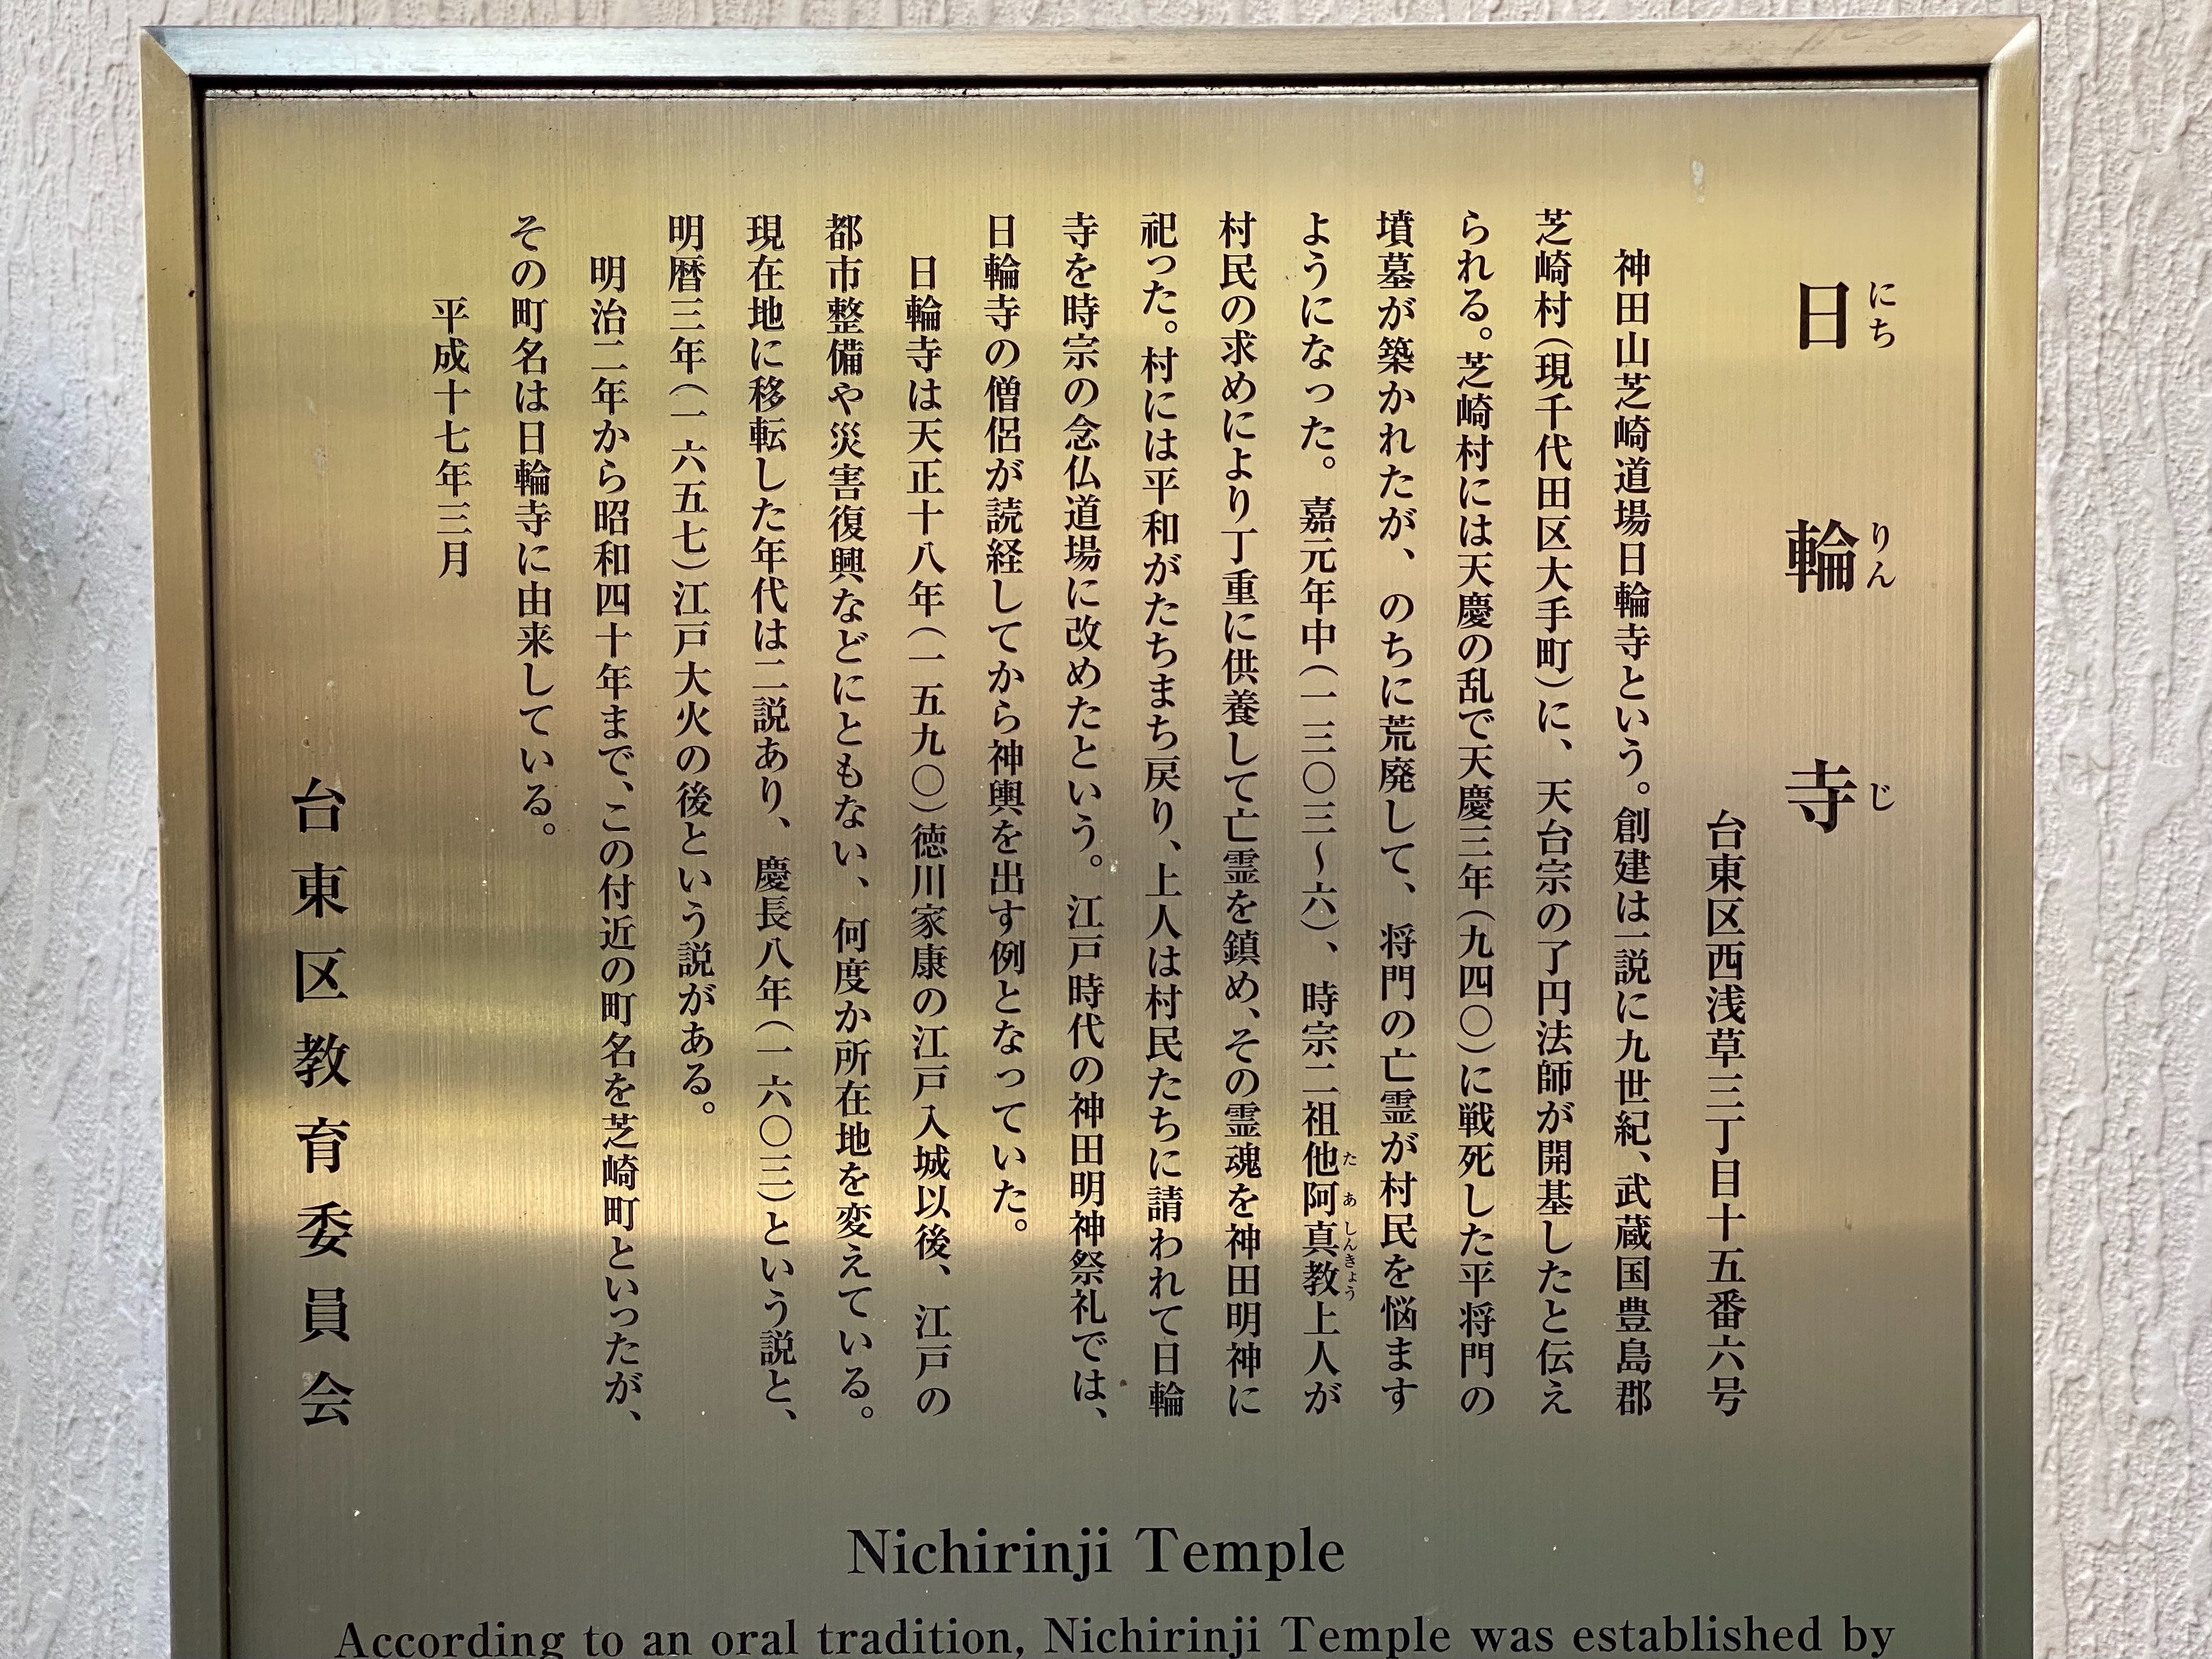 日輪寺
にちりんじ
台東区西浅草三丁目十五番六号
神田山芝崎道場日輪寺という。創建は一説に九世紀、武蔵国豊島郡
芝崎村（現千代田区大手町）に、天台宗の了円法師が開基したと伝え
られる。芝崎村には天慶の乱で天慶三年（九四〇）に戦死した平将門の
墳墓が築かれたが、のちに荒廃して、将門の亡霊が村民を悩ます
ようになった。嘉元年中（一三〇三〜六）、時宗二祖他阿真教上人が
たあしんきょう
村民の求めにより丁重に供養して亡霊を鎮め、その霊魂を神田明神に
祀った。村には平和がたちまち戻り、上人は村民たちに請われて日輪
寺を時宗の念仏道場に改めたという。江戸時代の神田明神祭礼では、
日輪寺の僧侶が読経してから神輿を出す例となっていた。
日輪寺は天正十八年（一五九〇）徳川家康の江戸入城以後、江戸の
都市整備や災害復興などにともない、何度か所在地を変えている。
現在地に移転した年代は二説あり、慶長八年（一六〇三）という説と、
明暦三年（一六五七）江戸大火の後という説がある。
明治二年から昭和四十年まで、この付近の町名を芝崎町といったが、
その町名は日輪寺に由来している。
平成十七年三月
台東区教育委員会
Nichirinji Temple
According to an oral tradition, Nichirinji Temple was established by